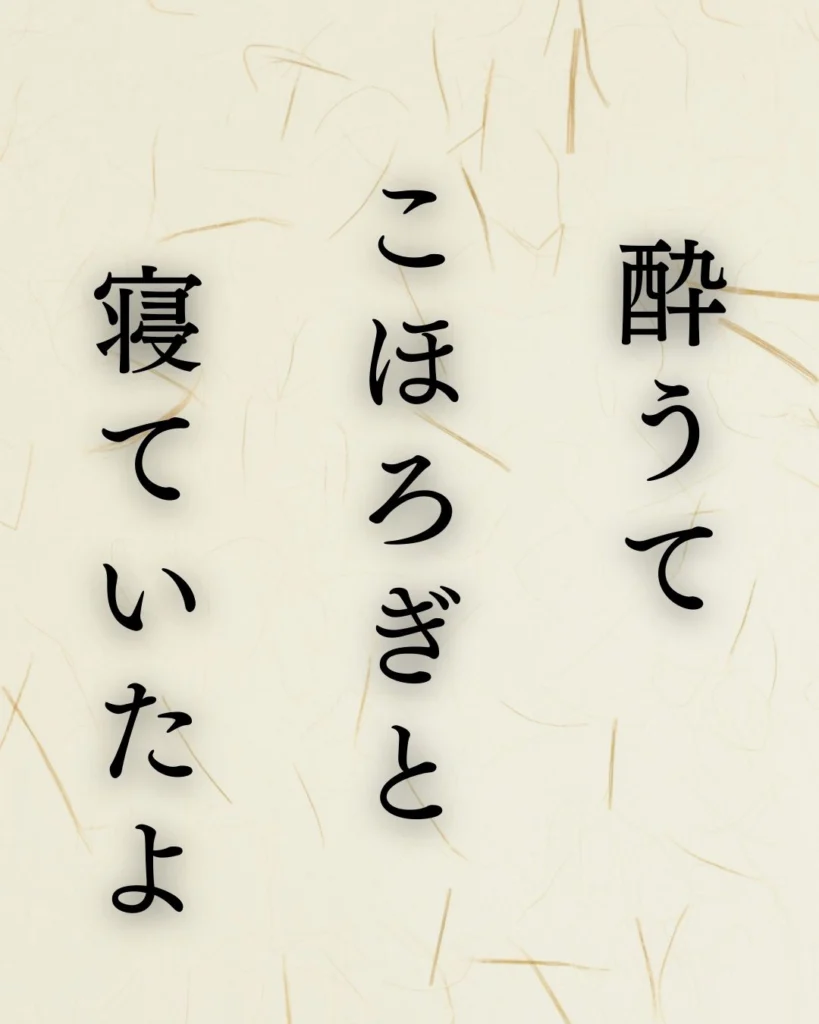 酔うて
こほろぎと
寝ていたよ